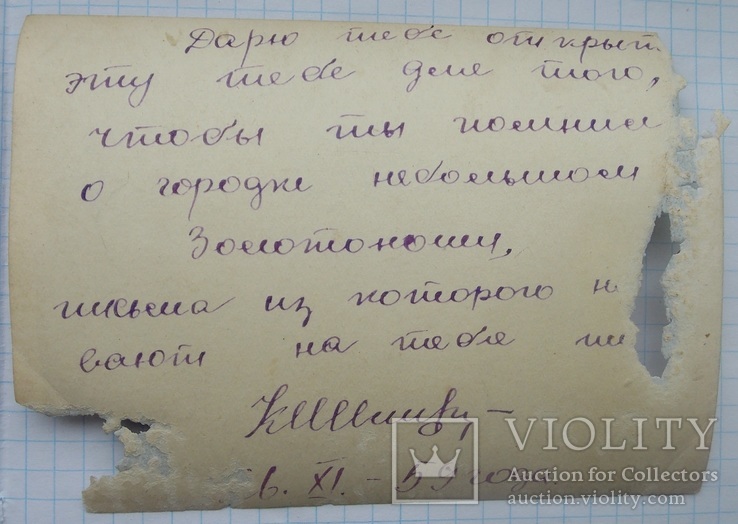 Дарю тебе открыт
эту тебе для того,
чтобы ты помнил
о городке небольшом
Золотоноши,
письма из которого н
вают на тебя
6. XI. – 59 года
VIOLITY
Auction for Collectors
auction.violity.com